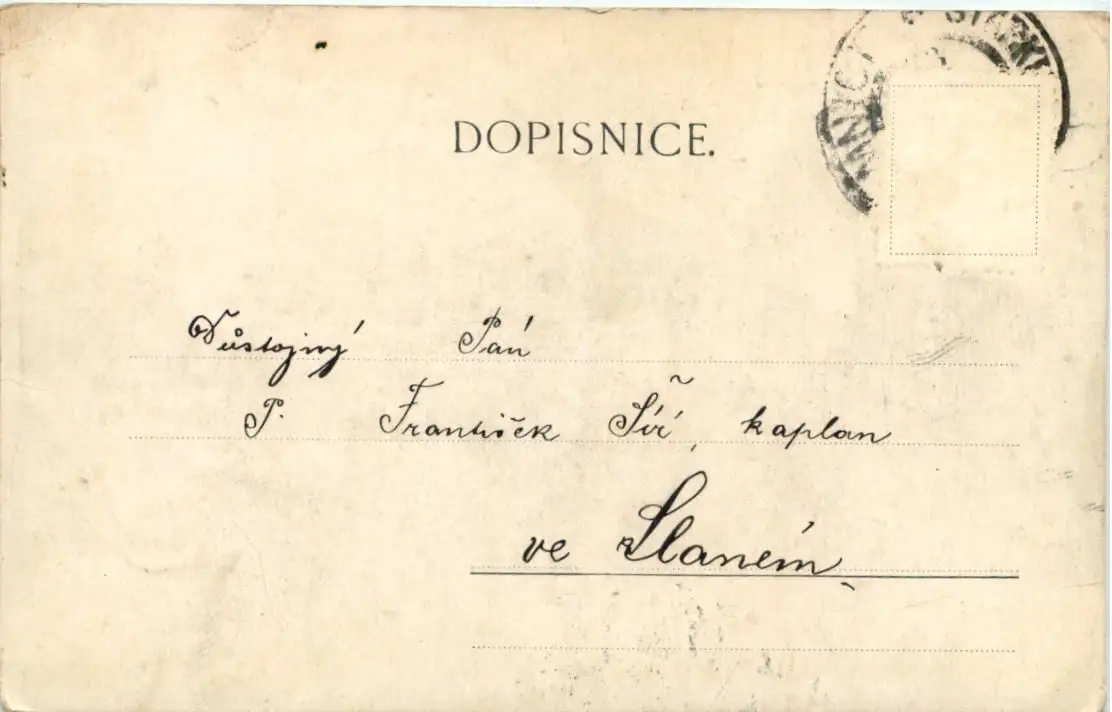 DOPISNICE.
Důstojný Pán
P. František Šíř, kaplan
ve Slaném